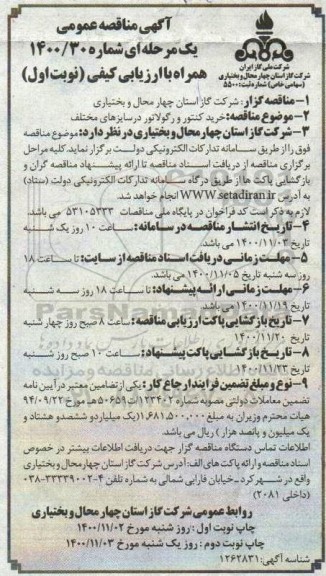 آگهی مناقصه عمومی
یک مرحله ای شماره ۱۴۰۰/۳۰
همراه با ارزیابی کیفی (نوبت اول)
شرکت ملی گاز ایران
شرکت گاز استان چهار محال و بختیاری
(سهامی خاص) شماره ثبت: ۵۵۰۰
۱- مناقصه گزار: شرکت گاز استان چهار محال و بختیاری
۲- موضوع مناقصه: خرید کنتور و رگولاتور در سایزهای مختلف
۳- شرکت گاز استان چهار محال و بختیاری در نظر دارد: موضوع مناقصه
فوق را از طریق سامانه تدارکات الکترونیکی دولت برگزار نماید. کلیه مراحل
برگزاری مناقصه از دریافت اسناد مناقصه تا ارائه پیشنهاد مناقصه گران و
بازگشایی پاکت ها از طریق درگاه سامانه تدارکات الکترونیکی دولت (ستاد)
به آدرس WWW.setadiran.ir انجام خواهد شد.
لازم به ذکر است کد فراخوان در پایگاه ملی مناقصات ۵۳۱۰۵۳۳۳ می باشد.
۴- تاریخ انتشار مناقصه در سامانه: ساعت ۱۰ روز یک شنبه
تاریخ ۱۴۰۰/۱۱/۰۳ می باشد.
۵- مهلت زمانی دریافت اسناد مناقصه از سایت: تا ساعت ۱۸
روز سه شنبه تاریخ ۱۴۰۰/۱۱/۰۵ می باشد.
۶- مهلت زمانی ارائه پیشنهاد: تا ساعت ۱۸ روز سه شنبه
تاریخ ۱۴۰۰/۱۱/۱۹ می باشد.
۷- تاریخ بازگشایی پاکت ارزیابی مناقصه: ساعت ۸ صبح روز چهار شنبه
تاریخ ۱۴۰۰/۱۱/۲۰ می باشد.
۸- تاریخ بازگشایی پاکت پیشنهاد: ساعت ۱۰ صبح روز شنبه
تاریخ ۱۴۰۰/۱۱/۲۳ می باشد.
۹- نوع و مبلغ تضمین فرایند ارجاع کار: یکی از تضامین معتبر در آیین نامه
تضمین معاملات دولتی مصوبه شماره ۱۲۳۴۰۲/ت۵۰۶۵۹ه مورخ ۹۴/۰۹/۲۲
هیات محترم وزیران به مبلغ ۱,۶۸۱,۵۰۰,۰۰۰ (یک میلیارد و ششصد و هشتاد و
یک میلیون و پانصد هزار) ریال می باشد.
اطلاعات تماس دستگاه مناقصه گزار جهت دریافت اطلاعات بیشتر در خصوص
اسناد مناقصه و ارائه پاکت های الف: آدرس شرکت گاز استان چهار محال و بختیاری
واقع در شهرکرد-خیابان فارابی شمالی به شماره تلفن ۴-۳۳۳۳۹۰۰۲-۰۳۸
(داخلی ۲۰۸۱)
روابط عمومی شرکت گاز استان چهار محال و بختیاری
چاپ نوبت اول: روز شنبه مورخ ۱۴۰۰/۱۱/۰۲
چاپ نوبت دوم: روز یک شنبه مورخ ۱۴۰۰/۱۱/۰۳
شناسه آگهی: ۱۲۶۲۸۳۱